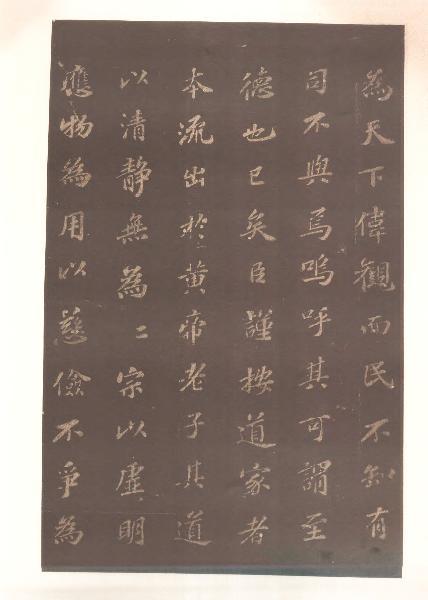 為天下偉觀而民不知有
司不與焉嗚呼其可謂至
德也已矣臣謹按道家者
本流出於黃帝老子其道
以清靜無為為宗以虛明
應物為用以慈儉不爭為